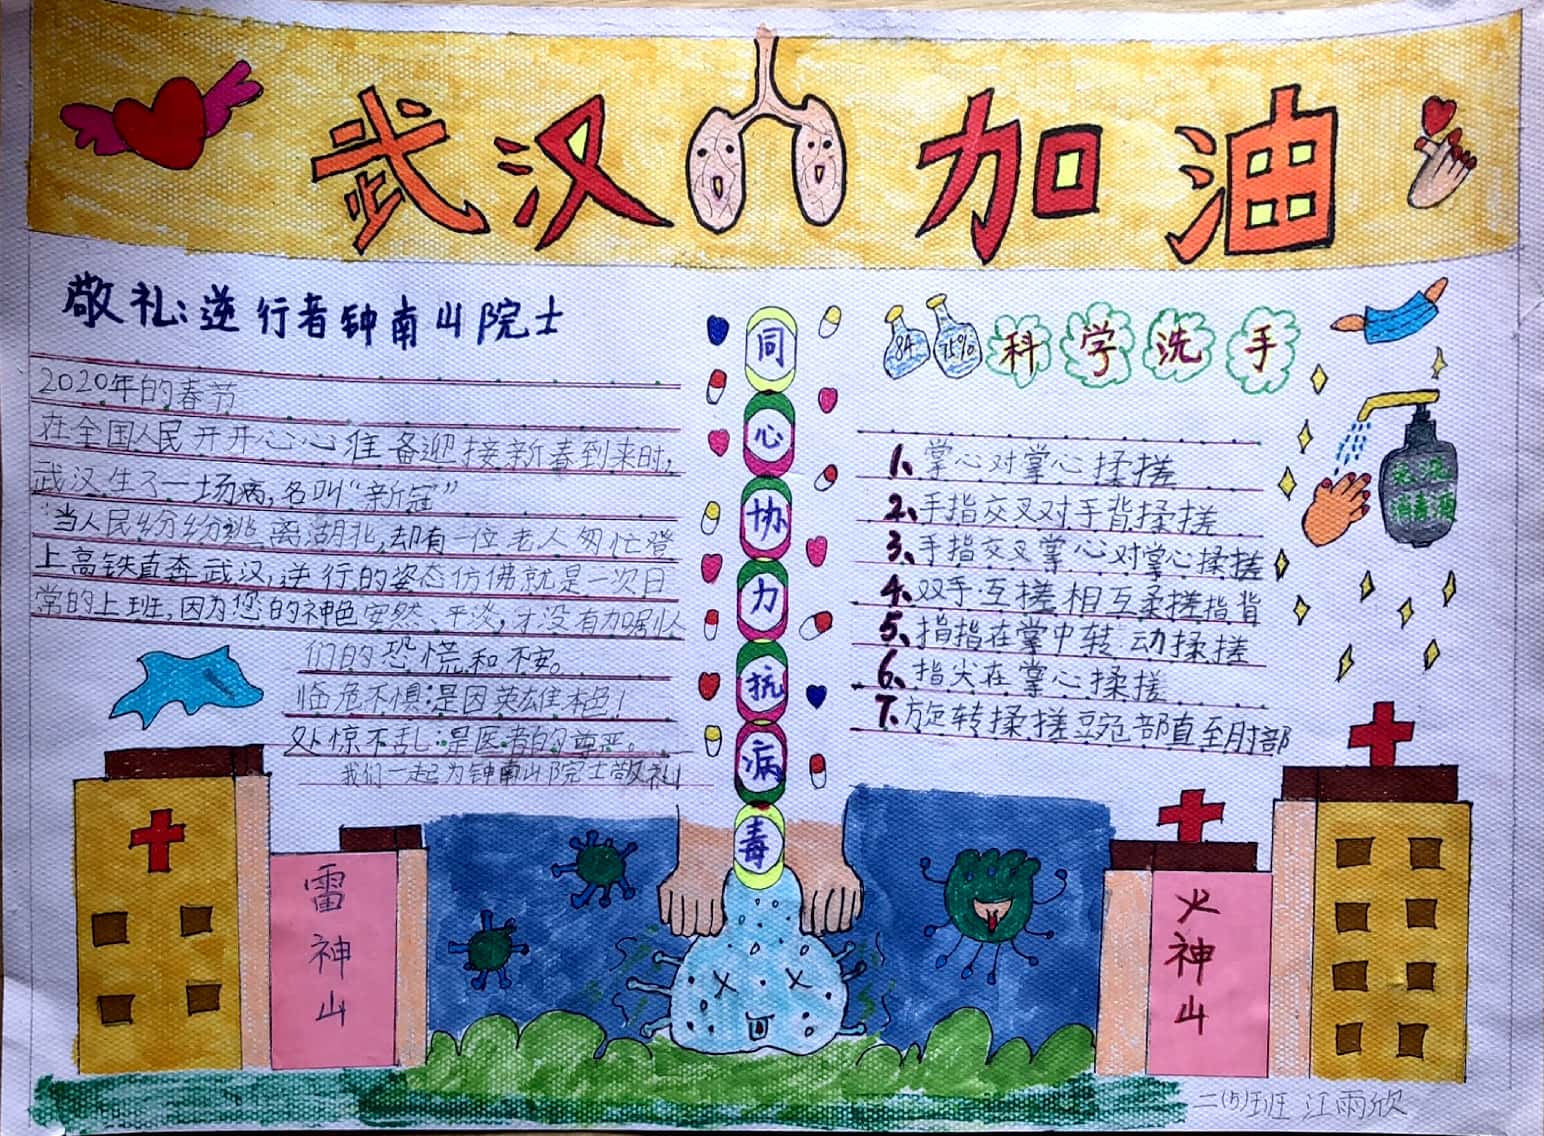 武汉加油
敬礼:逆行者钟南山院士
2020年的春节
在全国人民开开心心准备迎接新春到来时,
武汉生了一场病,名叫“新冠”
当人民纷纷逃离湖北,却有一位老人匆忙登
上高铁直奔武汉,逆行的姿态仿佛就是一次日
常的上班,因为您的神色安然、平淡,才没有加剧人
们的恐慌和不安。
临危不惧:是因英雄本色!
处惊不乱:是医者的尊严。
我们一起为钟南山院士敬礼!
同心协力抗病毒
84
75%
科学洗手
1、掌心对掌心揉搓
2、手指交叉对手背揉搓
3、手指交叉掌心对掌心揉搓
4、双手互搓相互揉搓指背
5、指指在掌中转动揉搓
6、指尖在掌心揉搓
7、旋转揉搓豌部直至肘部
免洗
消毒液
雷神山
火神山
二(5)班 江雨欣